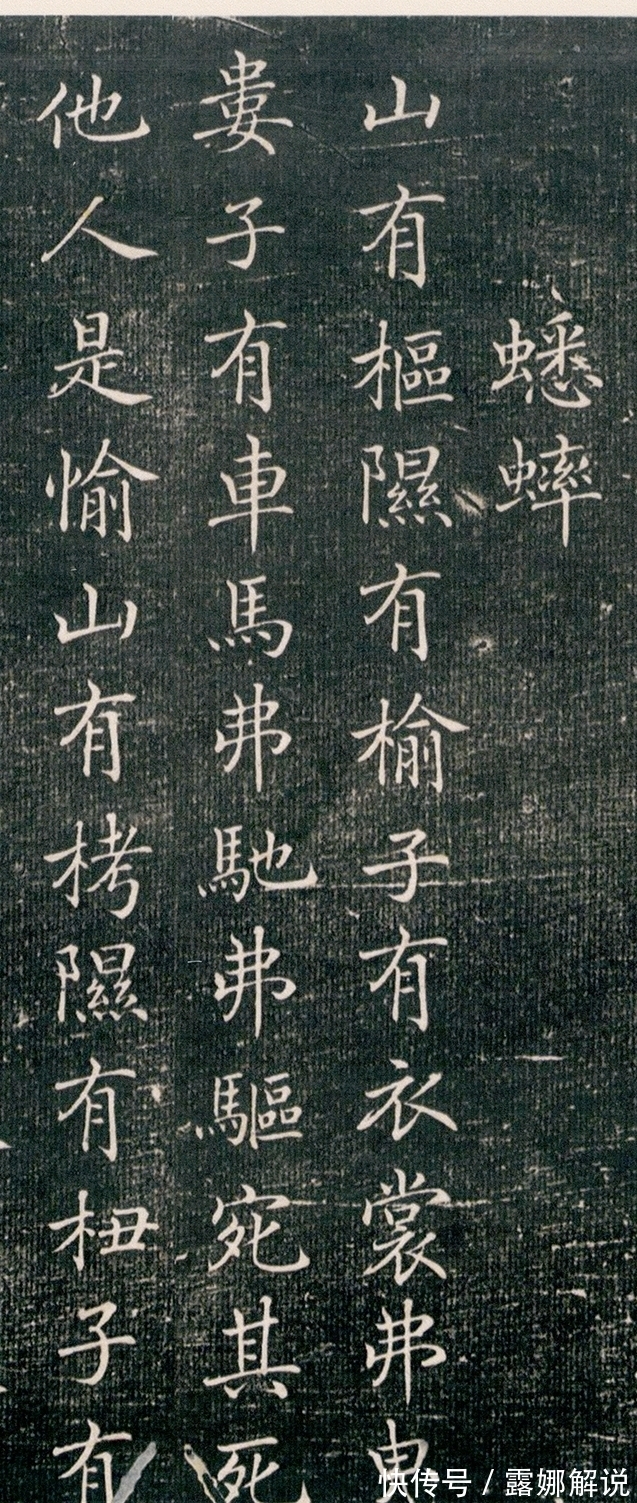 蟋蟀
山有樞隰有榆子有衣裳弗曳
婁子有車馬弗馳弗驅宛其死
他人是愉山有栲隰有杻子有
快传号 / 露娜解说